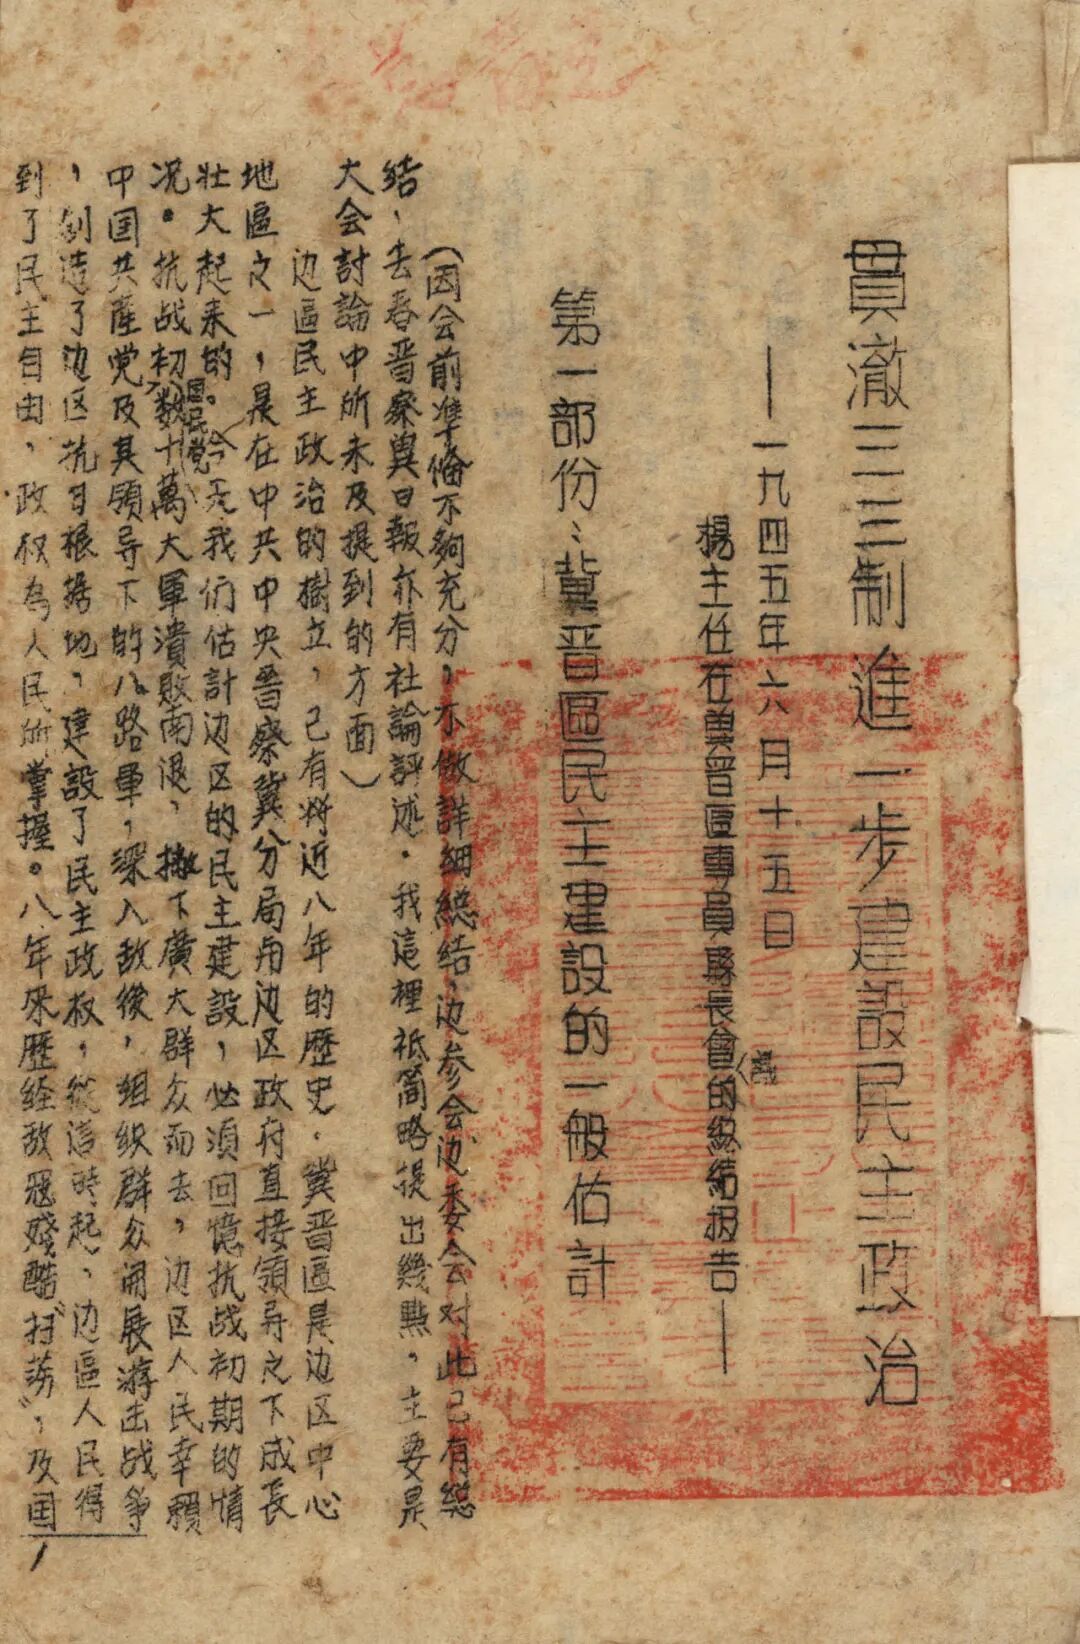 貫澈三三制進一步建設民主政治
——一九四五年六月十五日
楊主任在冀晋區專員縣長會議的総結报告——
第一部份：冀晋區民主建設的一般估計
（因会前准俻不夠充分，不做詳細総结、边参会边委会对此已有総
结、去春晋察冀日報亦有社論評述．我這裡祗简略提出幾點，主要是
大会討論中所未及提到的方面）
边區民主政治的樹立，已有将近八年的歷史．冀晋區是边区中心
地區之一，是在中共中央晋察冀分局甪边区政府直接領导之下成長
壮大起来的。今天我们估計边区的民主建設，必須回憶抗战初期的情
况。抗战初国民党数十萬大軍潰敗南退，撤下廣大群众而去，边区人民幸賴
中国共產党及其領导下的八路軍，深入敌後，组织群众開展游击战争
，創造了边区抗日根据地，建設了民主政权，從這時起、边區人民得
到了民主自由，政权為人民所掌握。八年来歷经敌寇殘酷“扫荡”，及国
1